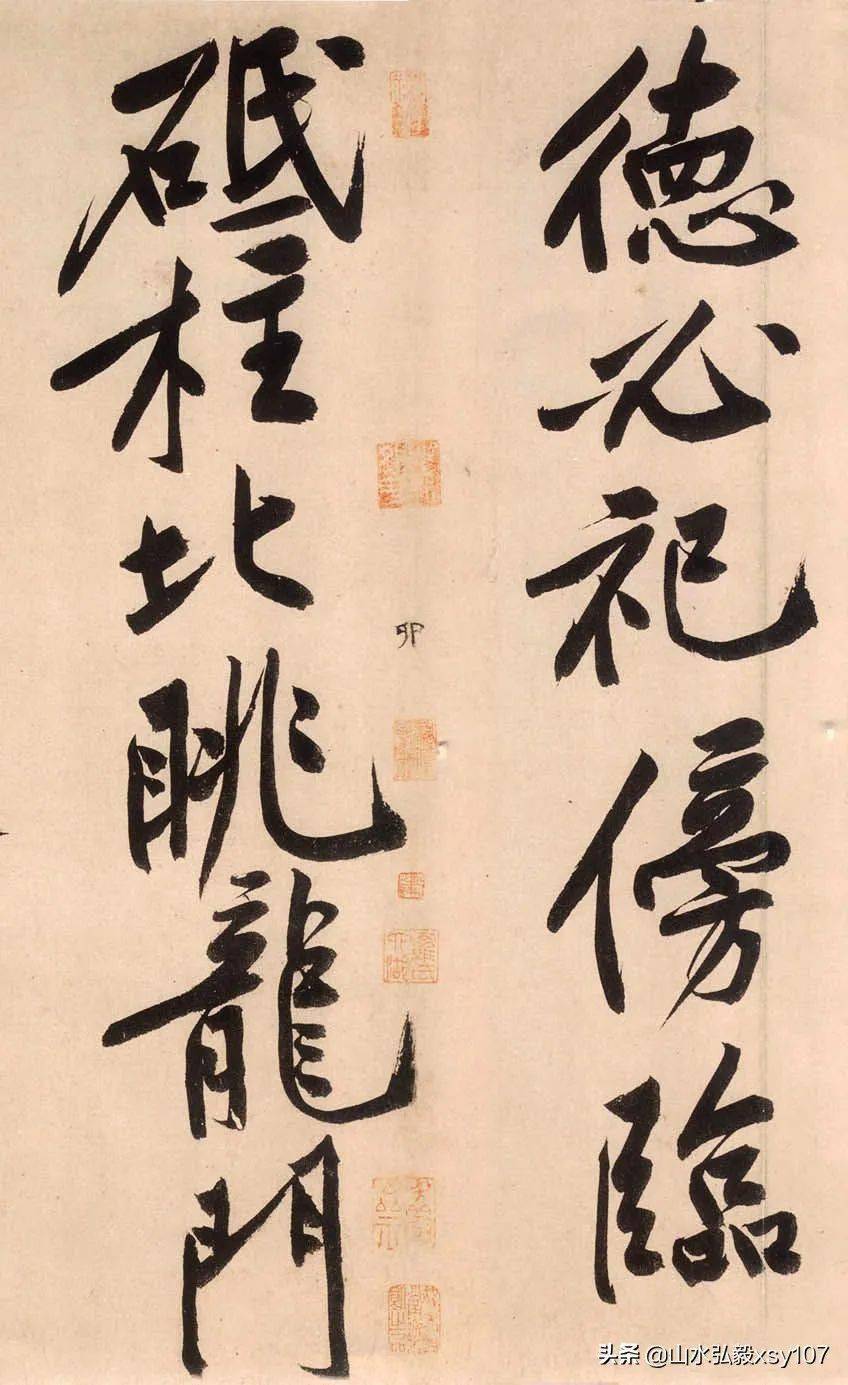 德必祀傍臨
砥柱北眺龍門
卯
头条 @山水弘毅xsy107